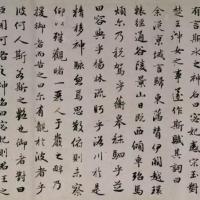 有言斯水之神名曰宓妃感宋玉對
楚王神女之事遂作斯賦其詞曰
余從京域言歸東藩背伊闕越轘
轅經通谷陵景山日既西傾車殆馬
煩爾乃稅駕乎蘅皋秣駟乎芝
田容與乎楊林流眄乎洛川於是
精移神駭忽焉思散俯則未察
仰以殊觀睹一麗人于巖之畔乃
御者而告之曰爾有覿於彼者乎
彼何人斯若此之艷也御者對曰
聞河洛之神名曰宓妃則君王之